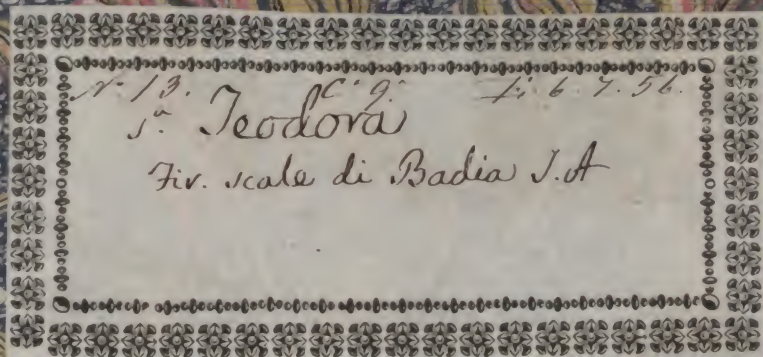 N. 13. C. 9. L. 6. 7. 56.
S.ª Teodora
Fir. scale di Badia S.A